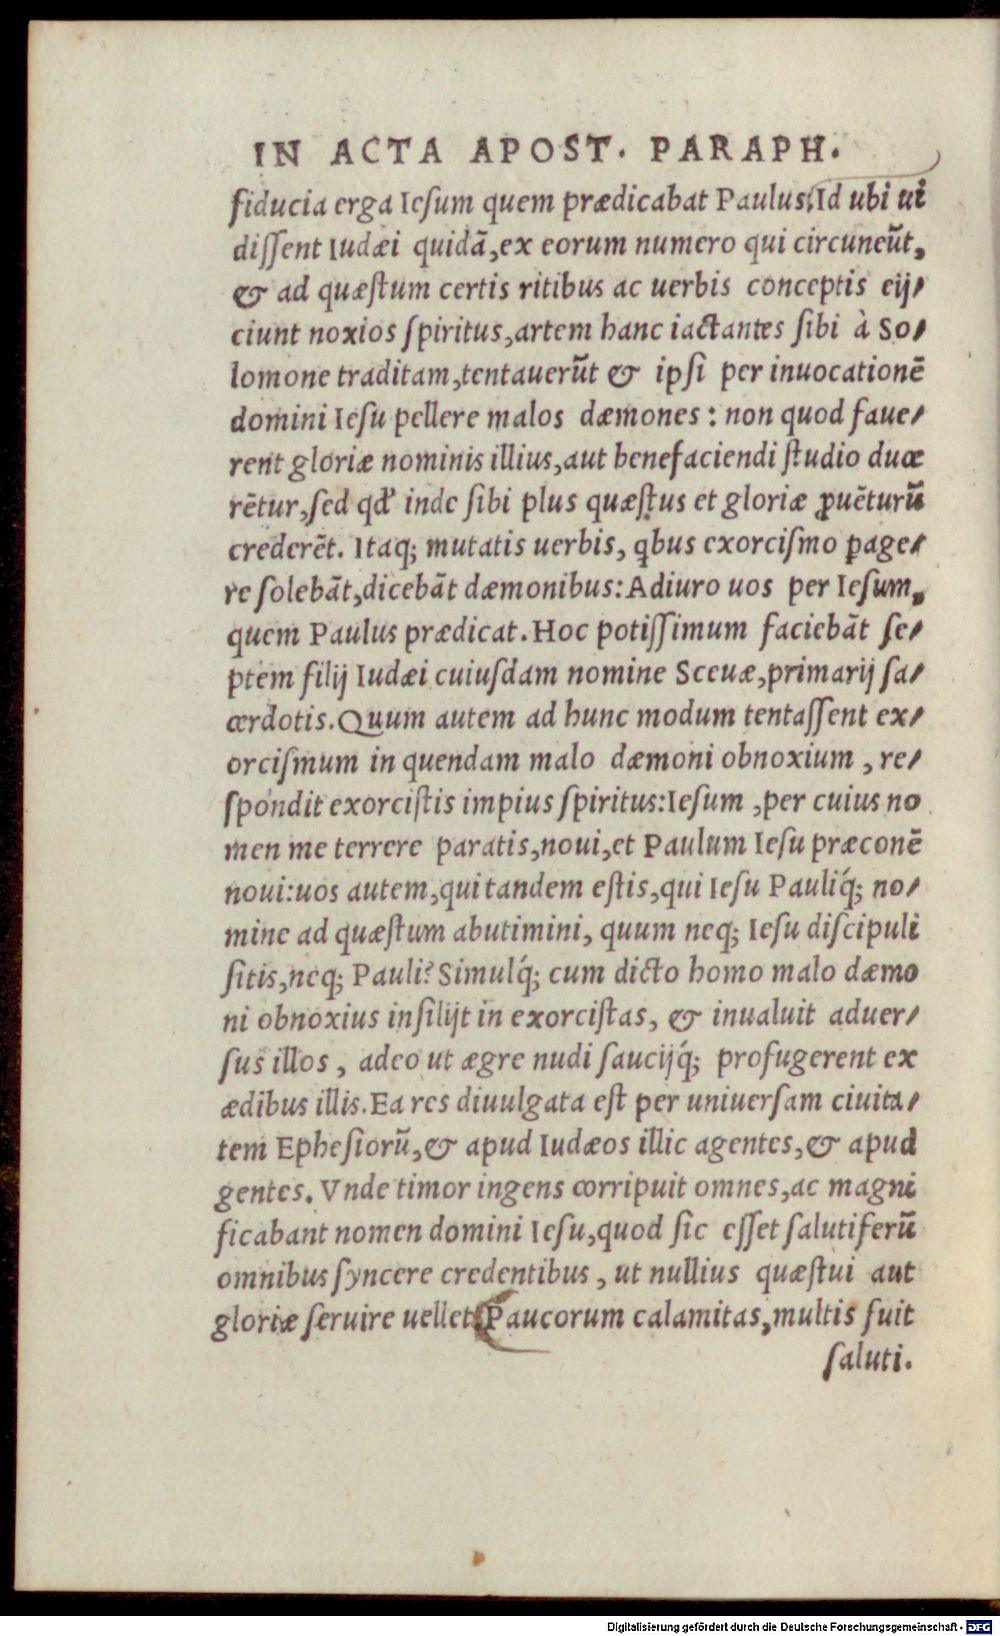 IN ACTA APOST. PARAPH.
fiducia erga Iesum quem prædicabat Paulus. Id ubi ui
dissent Iudæi quidã, ex eorum numero qui circuneũt,
& ad quæstum certis ritibus ac uerbis conceptis eij/
ciunt noxios spiritus, artem hanc iactantes sibi à So/
lomone traditam, tentauerũt & ipsi per inuocationẽ
domini Iesu pellere malos dæmones: non quod faue/
rent gloriæ nominis illius, aut benefaciendi studio duce
rẽtur, sed qđ inde sibi plus quæstus et gloriæ ꝓuẽturũ
crederẽt. Itaq; mutatis uerbis, qbus exorcismo ꝑage/
re solebãt, dicebãt dæmonibus: Adiuro uos per Iesum,
quem Paulus prædicat. Hoc potissimum faciebãt se/
ptem filij Iudæi cuiusdam nomine Sceuæ, primarij sa/
cerdotis. Quum autem ad hunc modum tentassent ex/
orcismum in quendam malo dæmoni obnoxium, re/
spondit exorcistis impius spiritus: Iesum, per cuius no
men me terrere paratis, noui, et Paulum Iesu præconẽ
noui: uos autem, qui tandem estis, qui Iesu Pauliq́; no/
mine ad quæstum abutimini, quum neq; Iesu discipuli
sitis, neq; Pauli? Simulq́; cum dicto homo malo dæmo
ni obnoxius insilijt in exorcistas, & inualuit aduer/
sus illos, adeo ut ægre nudi saucijq́; profugerent ex
ædibus illis. Ea res diuulgata est per uniuersam ciuita/
tem Ephesiorũ, & apud Iudæos illic agentes, & apud
gentes. Vnde timor ingens corripuit omnes, ac magni
ficabant nomen domini Iesu, quod sic esset salutiferũ
omnibus syncere credentibus, ut nullius quæstui aut
gloriæ seruire uellet. Paucorum calamitas, multis fuit
saluti.
Digitalisierung gefördert durch die Deutsche Forschungsgemeinschaft - DFG